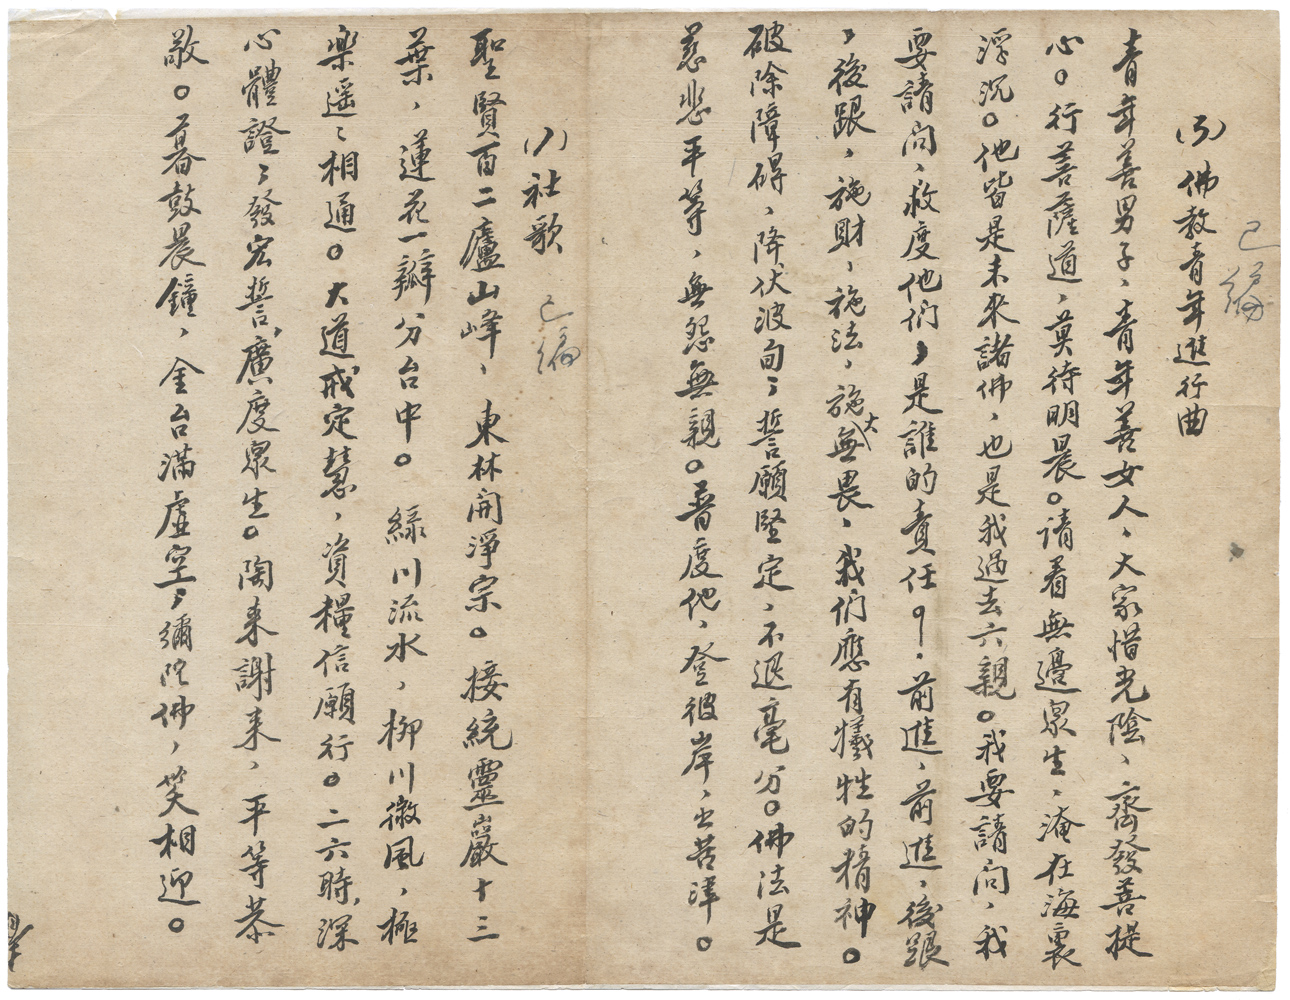 已編
(乃)佛教青年進行曲
青年善男子、青年善女人、大家惜光陰、齊發菩提
心。行菩薩道、莫待明晨。請看無邊衆生、淹在海裏
浮沉。他皆是未來諸佛、也是我過去六親。我要請問、我
要請問、救度他們、是誰的責任？前進、前進、後跟
、後跟、施財、施法、施大無畏、我們應有犧牲的精神。
破除障碍、降伏波旬、誓願堅定、不退毫分。佛法是
慈悲平等、無怨無親。普度他、登彼岸、出苦津。
(八)社歌 已編
聖賢百二廬山峰、東林開淨宗。接統靈巖十三
葉、蓮花一瓣分台中。綠川流水、柳川微風、極
樂遥遥相通。大道戒定慧、資糧信願行。二六時,深
心體證、發宏誓,廣度衆生。陶來謝來、平等恭
敬。暮鼓晨鐘、金台滿虛空、彌陀佛、笑相迎。